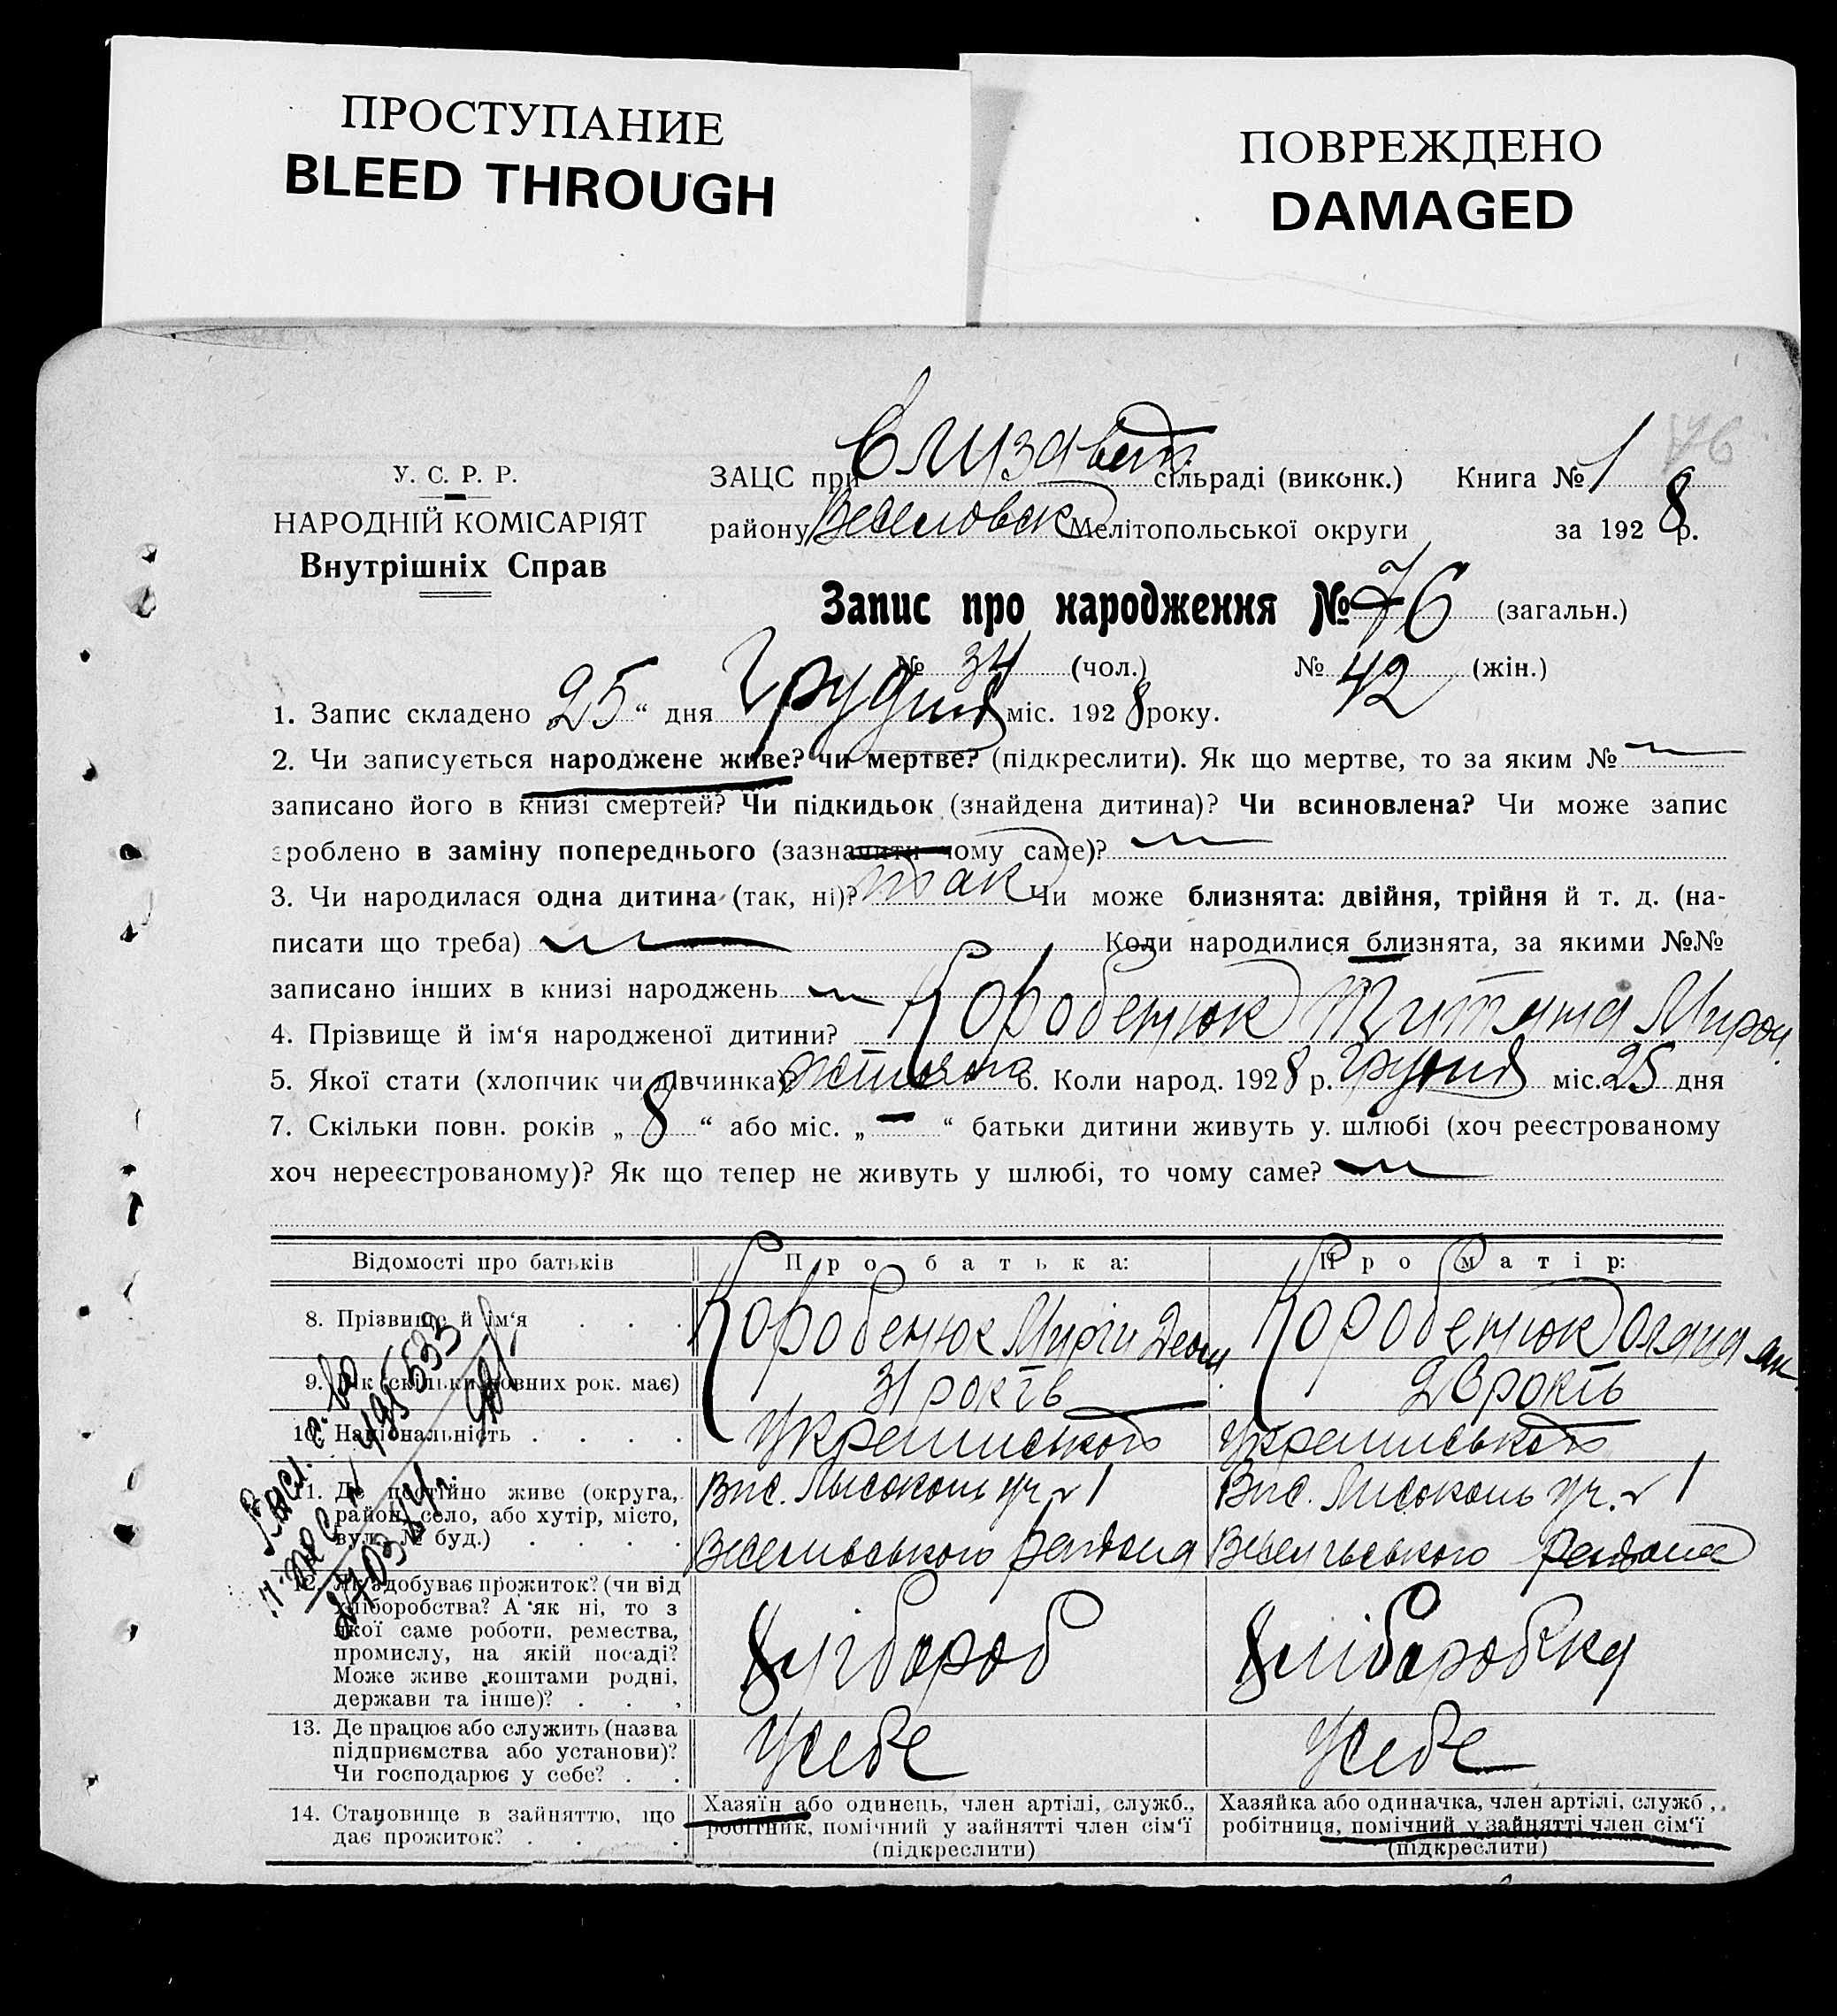 ПРОСТУПАНИЕ
BLEED THROUGH
ПОВРЕЖДЕНО
DAMAGED
76
У. С. Р. Р.
НАРОДНІЙ КОМІСАРІЯТ
Внутрішніх Справ
ЗАЦС при Єлизавет сільраді (виконк.) Книга № 1
району Веселовск Мелітопольської округи за 1928 р.
Запис про народження № 76 (загальн.)
№ 34 (чол.) № 42 (жін.)
1. Запис складено „25“ дня Грудня міс. 1928 року.
2. Чи записується народжене живе? чи мертве? (підкреслити). Як що мертве, то за яким №
записано його в книзі смертей? Чи підкидьок (знайдена дитина)? Чи всиновлена? Чи може запис
зроблено в заміну попереднього (зазначити чому саме)?
3. Чи народилася одна дитина (так, ні)? так Чи може близнята: двійня, трійня й т. д. (на-
писати що треба) Коли народилися близнята, за якими №№
записано інших в книзі народжень
4. Прізвище й ім‘я народженої дитини? Коробенюк Мирон.
5. Якої стати (хлопчик чи дівчинка)? 6. Коли народ. 1928 р. грудня міс. 25 дня
7. Скільки повн. років „8“ або міс. „—“ батьки дитини живуть у. шлюбі (хоч реєстрованому
хоч нереєстрованому)? Як що тепер не живуть у шлюбі, то чому саме?
Відомості про батьків Про батька: Про матір:
8. Прізвище й ім‘я . . . Коробенюк Коробенюк
9. Вік (скільки повних рок. має) 31 років років
10. Національність . . . . украинського украинського
11. Де постійно живе (округа, район, село, або хутір, місто, вул., № буд.) . . . . Вис. уч. № 1 района Вис. уч. № 1 района
12. Як здобуває прожиток? (чи від хліборобства? А як ні, то з якої саме роботи, ремества, промислу, на якій посаді? Може живе коштами родні, держави та інше)? . . . Хлібороб Хліборобка
13. Де працює або служить (назва підприємства або установи)? Чи господарює у себе? . . У себе У себе
14. Становище в зайняттю, що дає прожиток? . . . Хазяїн або одинець, член артілі, служб., робітник, помічний у зайнятті член сім‘ї (підкреслити) Хазяйка або одиначка, член артілі, служб., робітниця, помічний у зайнятті член сім‘ї (підкреслити)